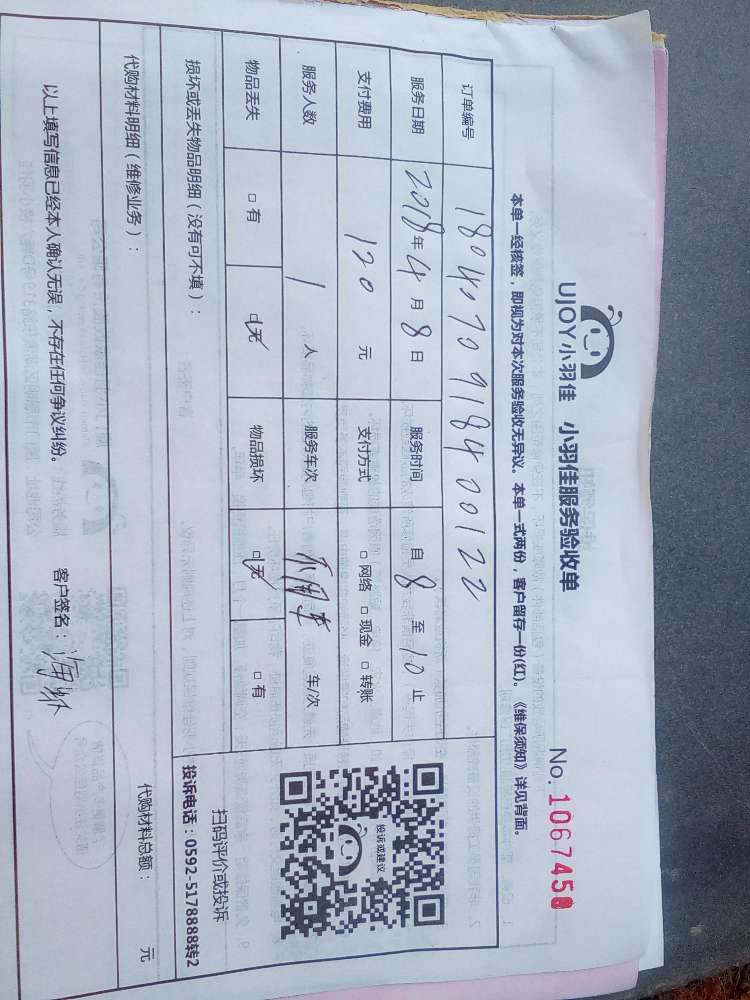 UJOY小羽佳 小羽佳服务验收单
No. 1067450
本单一经核签，即视为对本次服务验收无异议。本单一式两份，客户留存一份(红)。《维保须知》详见背面。
订单编号 1804070918400122
服务日期 2018年4月8日 服务时间 自8至10止
支付费用 120元 支付方式 □网络 □现金 □转账
服务人数 1人 服务车次 不用车 车/次
物品丢失 □有 □无 物品损坏 □无 □有
损坏或丢失物品明细（没有可不填）：
投诉或建议
扫码评价或投诉
投诉电话：0592-5178888转2
代购材料明细（维修业务）：
代购材料总额： 元
以上填写信息已经本人确认无误，不存在任何争议纠纷。 客户签名：